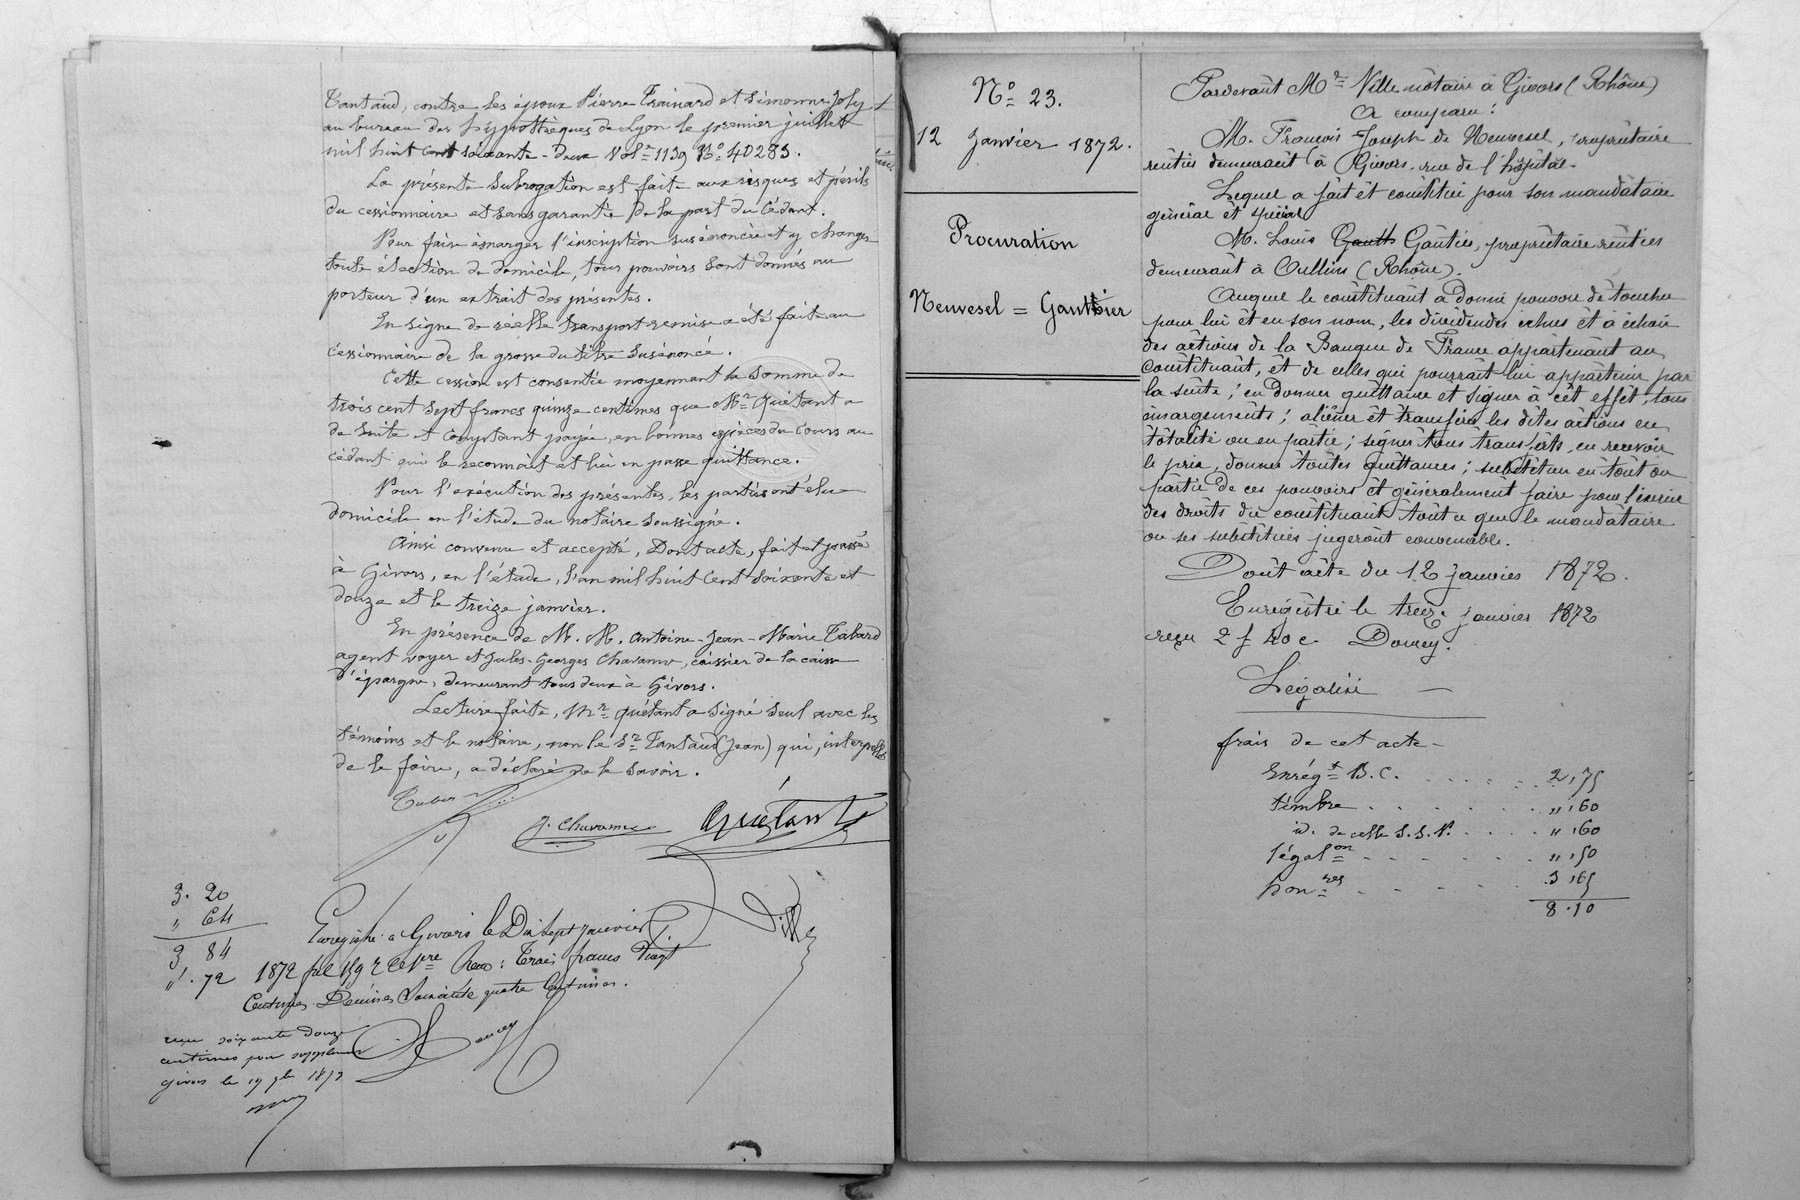 Tantaud, contre les époux Pierre Trainard et Simonne Joly
au bureau des hypothèques de Lyon le premier juillet
mil huit cent soixante-deux Vol. 1139 No 40285.
La présente subrogation est faite aux risques et périls
du cessionnaire et sans garantie de la part du Cédant.
Pour faire émarger l'inscription susénoncée et y changer
toute élection de domicile, tous pouvoirs sont donnés au
porteur d'un extrait des présentes.
En signe de réelle transport remise a été faite au
cessionnaire de la grosse du titre susénoncé.
Cette cession est consentie moyennant la somme de
trois cent sept francs quinze centimes que Mr Quétant a
de suite et comptant payée, en bonnes espèces du cours au
cédant qui le reconnait et lui en passe quittance.
Pour l'exécution des présentes, les parties ont élu
domicile en l'étude du notaire soussigné.
Ainsi convenu et accepté, Dont acte, fait et passé
à Givors, en l'étude, l'an mil huit cent soixante et
douze et le treize janvier.
En présence de M. M. Antoine-Jean-Marie Tabard
agent voyer et Jules-Georges Chavanne, caissier de la caisse
d'épargne, demeurant tous deux à Givors.
Lecture faite, Mr Quétant a signé seul avec les
témoins et le notaire, non le Sr Tantaud (Jean) qui, interpellé
de le faire, a déclaré ne le savoir.
J. Chavanne Quétant
Ville
3. 20
" 64
3 84
" . 72
Enregistré à Givors le Dix sept janvier
1872 fol 159 Reçu : Trois francs Vingt
Centimes Décimes Soixante quatre Centimes.
Doucy
reçu soixante douze
centimes pour supplément
Givors le 19 1872
No 23.
12 Janvier 1872.
Procuration
Neuvesel = Gauthier
Pardevant Me Ville notaire à Givors (Rhône)
A comparu :
M. François-Joseph de Neuvesel, propriétaire
rentier demeurant à Givors, rue de l'hôpital.
Lequel a fait et constitué pour son mandataire
général et spécial
M. Louis Gauth Gautier, propriétaire rentier
demeurant à Oullins (Rhône).
Auquel le constituant a donné pouvoir de toucher
pour lui et en son nom, les dividendes échus et à échoir
des actions de la Banque de France appartenant au
Constituant, et de celles qui pourrait lui appartenir par
la suite ; en donner quittance et signer à cet effet, tous
émargements ; aliéner et transférer les dites actions en
totalité ou en partie ; signer tous transferts, en recevoir
le prix, donner toutes quittances ; substituer en tout ou
partie de ces pouvoirs et généralement faire pour l'exercice
des droits du constituant tout ce que le mandataire
ou ses substitués jugeront convenable.
Dont acte du 12 janvier 1872.
Enregistré le treize janvier 1872
reçu 2 f 40 c Doucy.
Légalisé —
frais de cet acte —
Enrégt B. C. . . . . . 2,75
timbre . . . . . . ",60
id. de celle S. S. P. . . . . ",60
légalon . . . . . . ",50
honres . . . . . 3,65
8.10